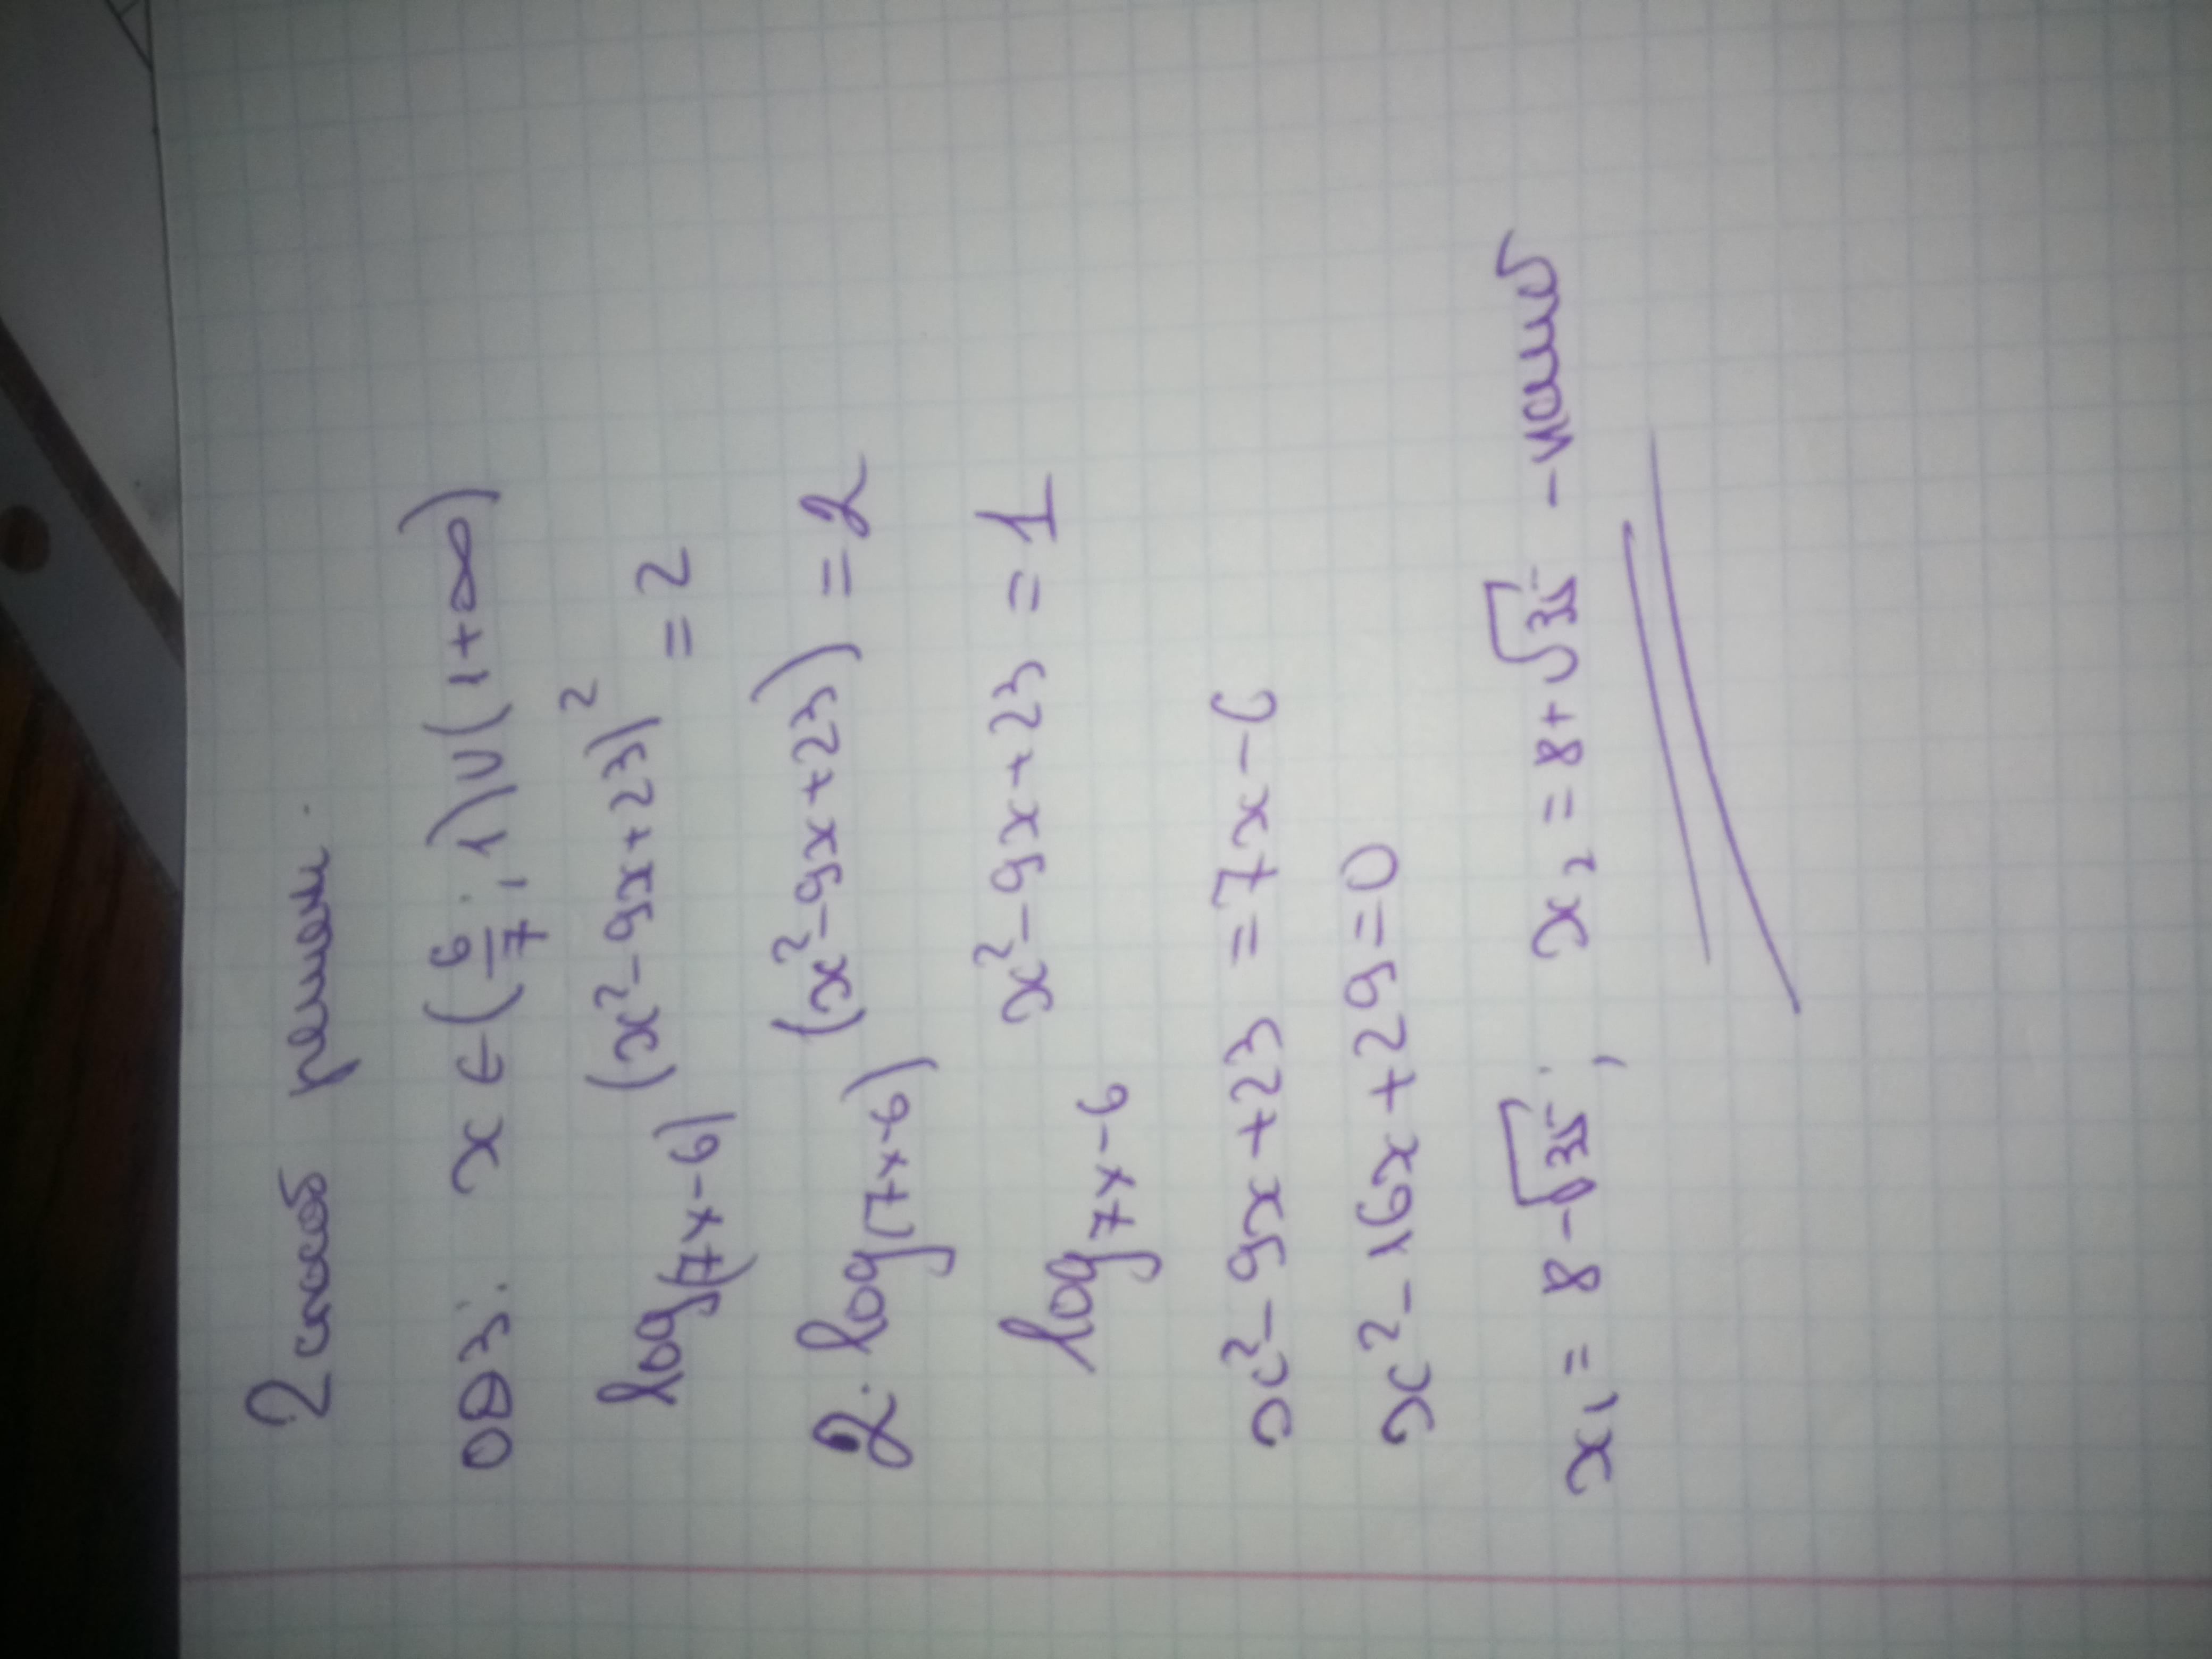 2 способ решен.
ОДЗ: x ∈ (6/7; 1) ∪ (1+∞)
log(7x-6) (x²-9x+23)² = 2
2·log(7x-6) (x²-9x+23) = 2
log7x-6 x²-9x+23 = 1
x²-9x+23 = 7x-6
x²-16x+29=0
x₁ = 8-√35; x₂ = 8+√35